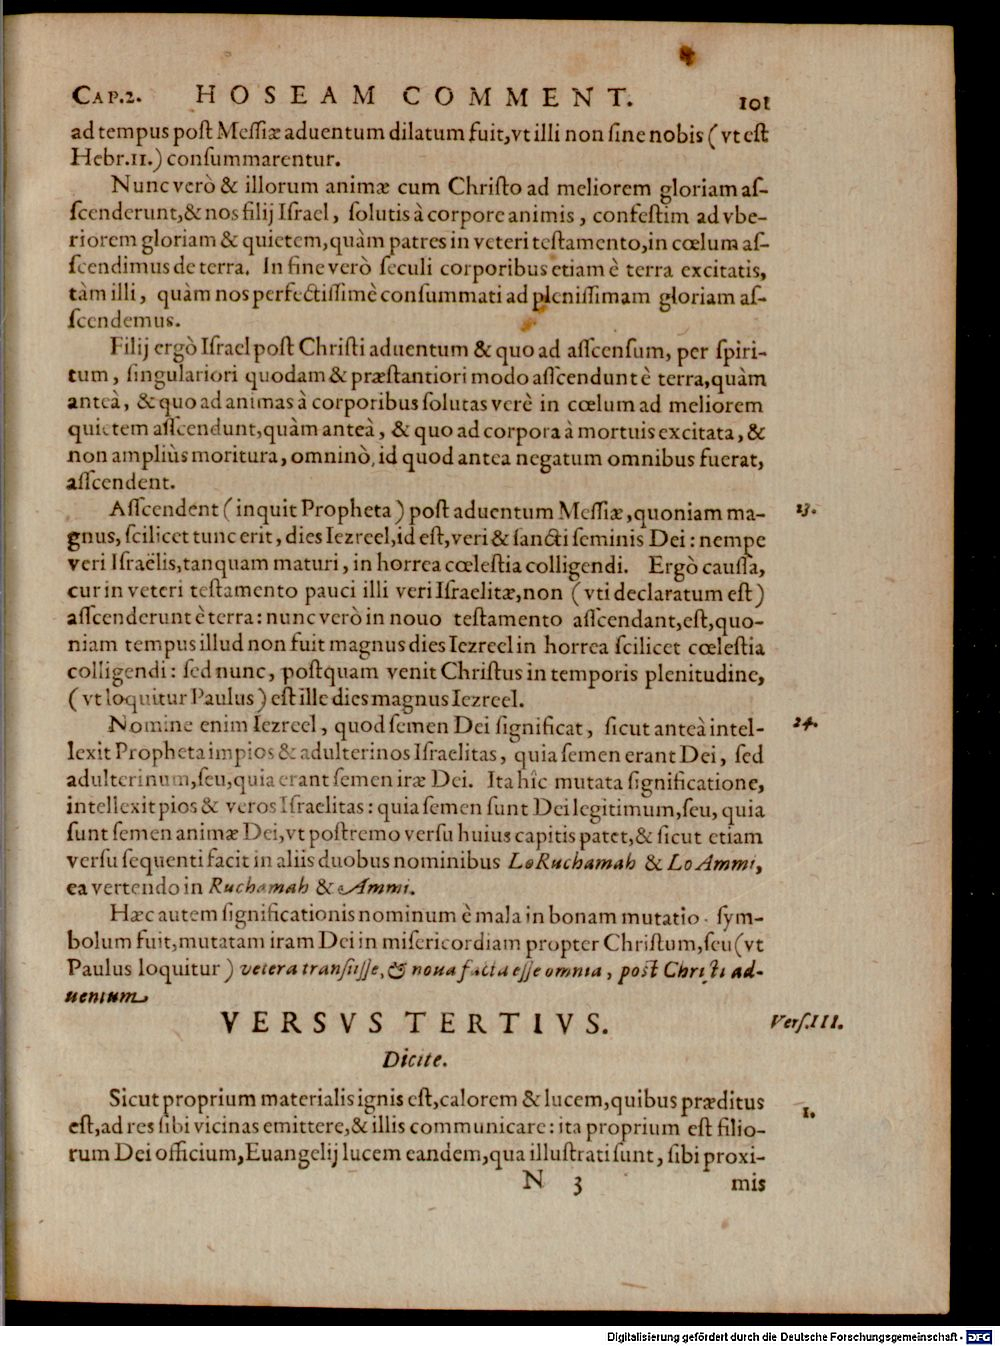 CAP.2. HOSEAM COMMENT. 101
ad tempus poſt Meſſiæ aduentum dilatum fuit,vt illi non ſine nobis (vt eſt
Hebr.11.) conſummarentur.
Nunc verò & illorum animæ cum Chriſto ad meliorem gloriam aſ-
ſcenderunt,& nos filij Iſrael, ſolutis à corpore animis, confeſtim ad vbe-
riorem gloriam & quietem,quàm patres in veteri teſtamento,in cœlum aſ-
ſcendimus de terra. In fine verò ſeculi corporibus etiam è terra excitatis,
tàm illi, quàm nos perfectiſſimè conſummati ad pleniſſimam gloriam aſ-
ſcendemus.
Filij ergò Iſrael poſt Chriſti aduentum & quo ad aſſcenſum, per ſpiri-
tum, ſingulariori quodam & præſtantiori modo aſſcendunt è terra,quàm
anteà, & quo ad animas à corporibus ſolutas verè in cœlum ad meliorem
quietem aſſcendunt,quàm anteà, & quo ad corpora à mortuis excitata, &
non ampliùs moritura, omninò, id quod antea negatum omnibus fuerat,
aſſcendent.
Aſſcendent (inquit Propheta) poſt aduentum Meſſiæ,quoniam ma- 23.
gnus, ſcilicet tunc erit, dies Iezreel,id eſt,veri & ſancti ſeminis Dei: nempe
veri Iſraëlis,tanquam maturi, in horrea cœleſtia colligendi. Ergò cauſſa,
cur in veteri teſtamento pauci illi veri Iſraelitæ,non (vti declaratum eſt)
aſſcenderunt è terra: nunc verò in nouo teſtamento aſſcendant,eſt,quo-
niam tempus illud non fuit magnus dies Iezreel in horrea ſcilicet cœleſtia
colligendi: ſed nunc, poſtquam venit Chriſtus in temporis plenitudine,
(vt loquitur Paulus) eſt ille dies magnus Iezreel.
Nomine enim Iezreel, quod ſemen Dei ſignificat, ſicut anteà intel- 24.
lexit Propheta impios & adulterinos Iſraelitas, quia ſemen erant Dei, ſed
adulterinum,ſeu,quia erant ſemen iræ Dei. Ita hîc mutata ſignificatione,
intellexit pios & veros Iſraelitas: quia ſemen ſunt Dei legitimum,ſeu, quia
ſunt ſemen animæ Dei,vt poſtremo verſu huius capitis patet,& ſicut etiam
verſu ſequenti facit in aliis duobus nominibus Lo Ruchamah & Lo Ammi,
ea vertendo in Ruchamah & Ammi.
Hæc autem ſignificationis nominum è mala in bonam mutatio ſym-
bolum fuit,mutatam iram Dei in miſericordiam propter Chriſtum,ſeu (vt
Paulus loquitur) vetera tranſiſſe, & noua facta eſſe omnia, poſt Chriſti ad-
uentum.
VERSVS TERTIVS. Verſ.III.
Dicite.
Sicut proprium materialis ignis eſt,calorem & lucem,quibus præditus 1.
eſt,ad res ſibi vicinas emittere,& illis communicare: ita proprium eſt filio-
rum Dei officium,Euangelij lucem eandem,qua illuſtrati ſunt, ſibi proxi-
N 3 mis
Digitalisierung gefördert durch die Deutsche Forschungsgemeinschaft - DFG